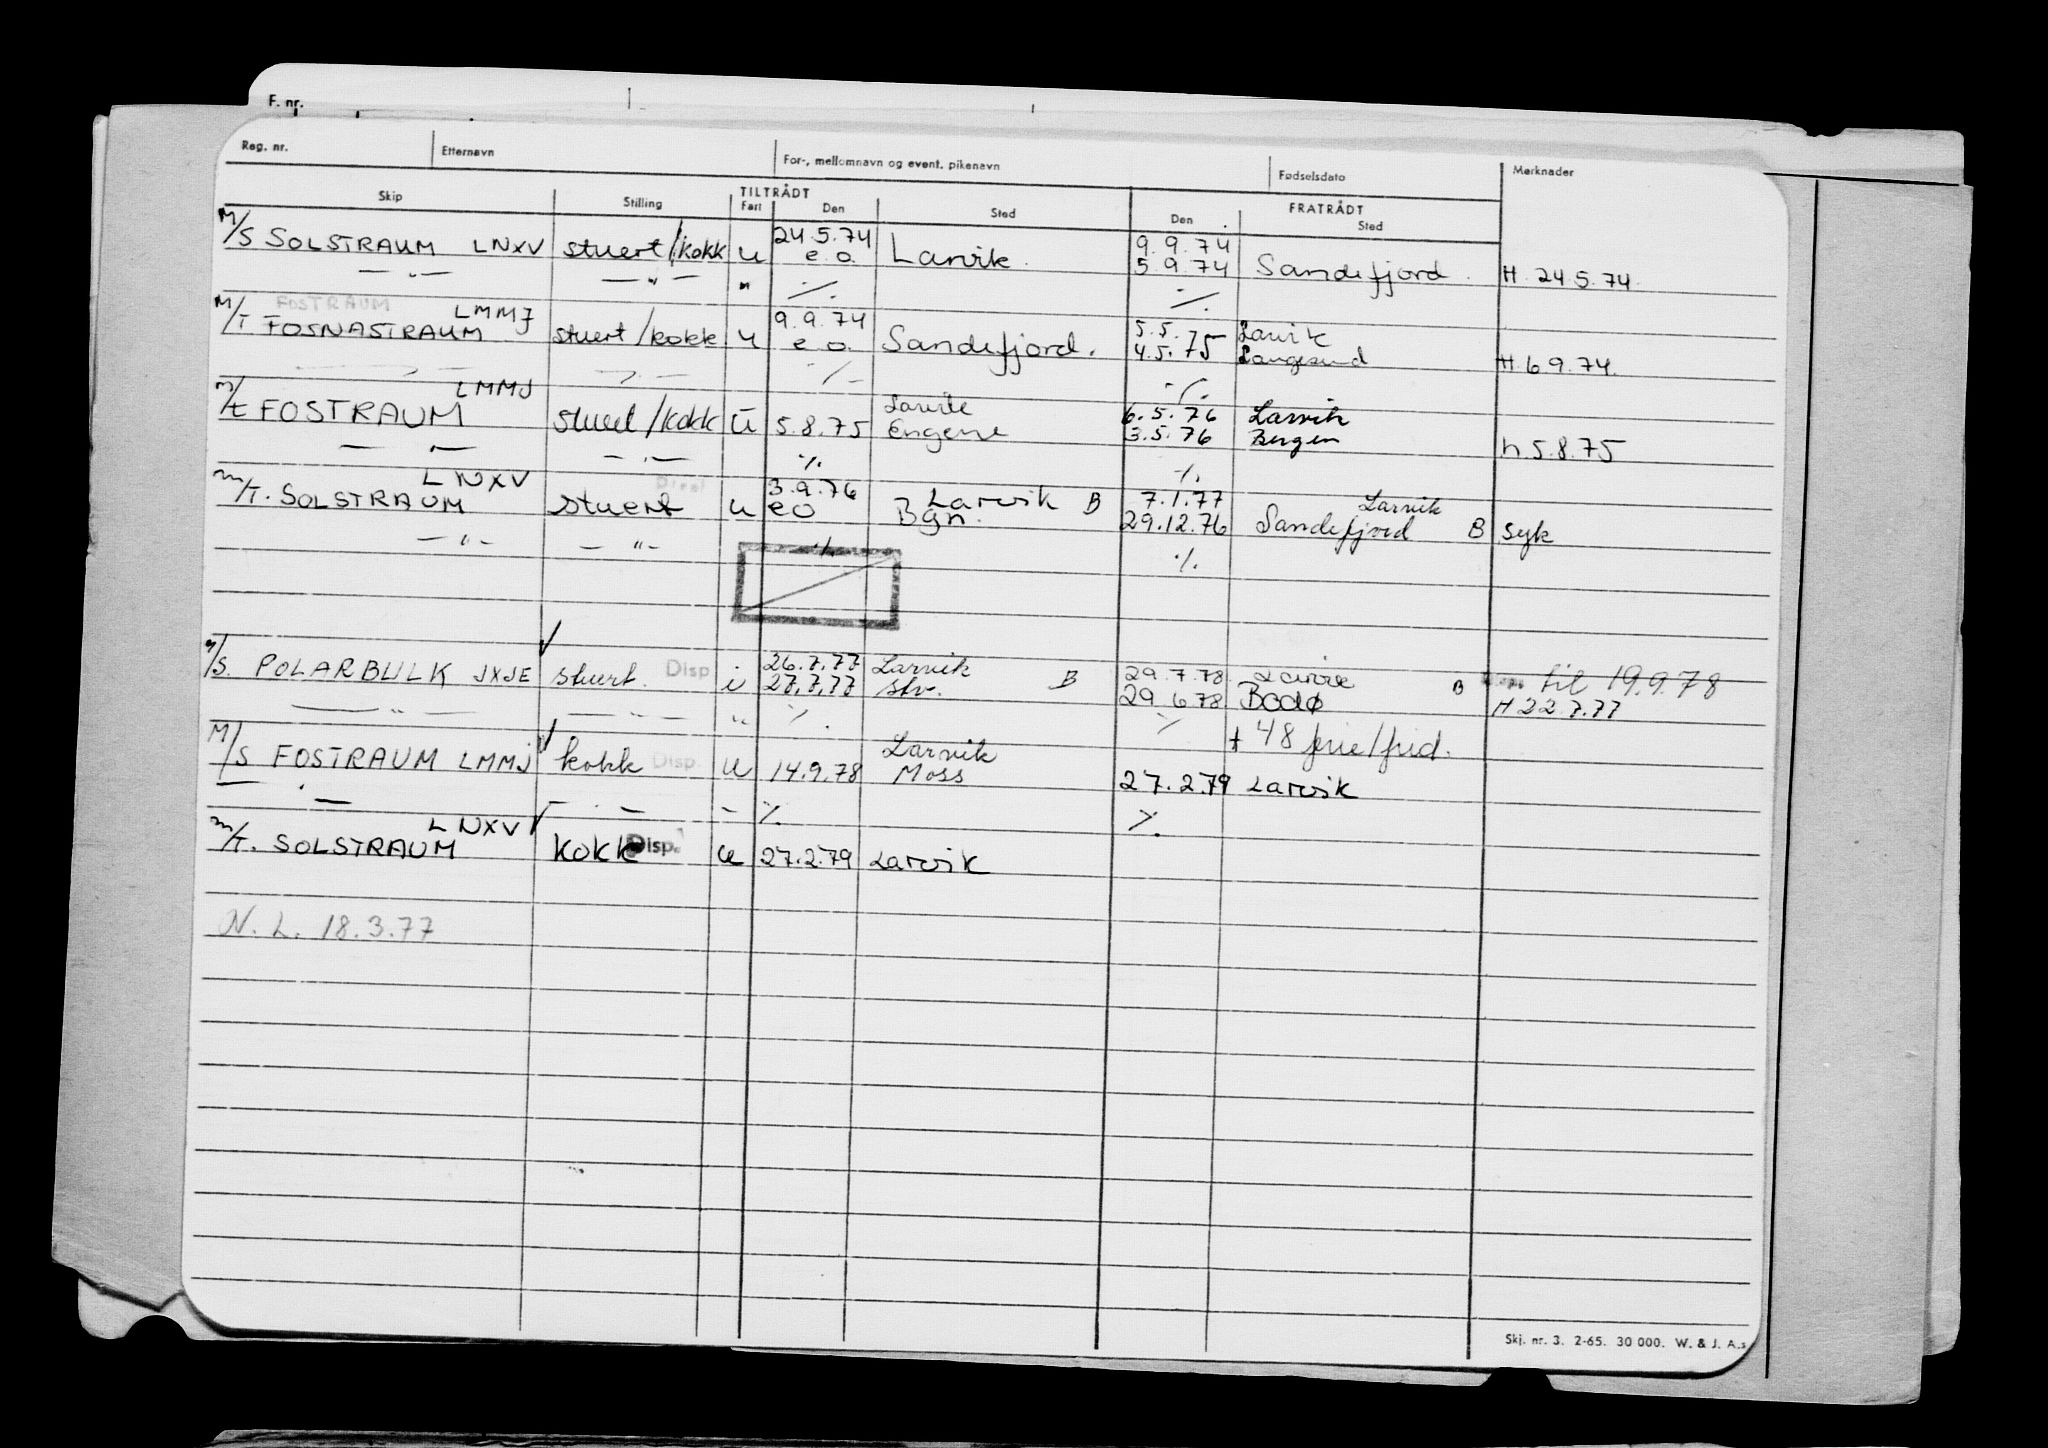 F. nr.
Reg. nr. Etternavn For-, mellomnavn og event. pikenavn Fødselsdato Merknader
TILTRÅDT FRATRÅDT
Skip Stilling Fart Den Sted Den Sted
24.5.74 9.9.74
M/S SOLSTRAUM LNXV stuert/kokk u e.o. Larvik 5.9.74 Sandefjord. H. 24.5.74.
— " — — " — " ./. ./.
FOSTRAUM LMMJ 9.9.74 5.5. Larvik
M/T FOSNASTRAUM stuert/kokk u e.o. Sandefjord. 4.5.75 Langesund H. 6.9.74.
— " — — " — ./. ./.
LMMJ Larvik 6.5.76 Larvik
m/t FOSTRAUM stuert/kokk u 5.8.75 Engene 3.5.76 Bergen h. 5.8.75
— " — — " — ./. ./.
LNXV 3.9.76 Larvik B 7.1.77 Larvik
m/T. SOLSTRAUM stuert u eo Bgn. 29.12.76 Sandefjord B syk
— " — — " — ./. ./.
26.7.77 Larvik 29.7.78 Larvik til 19.9.78
M/S. POLARBULK JXJE stuert. Disp i 27.7.77 Stv. B 29.6.78 Bodø B H 22.7.77
— " — — " — " ./. ./. + 48 frie/frid.
Larvik
M/S FOSTRAUM LMMJ kokk Disp. u 14.9.78 Moss 27.2.79 Larvik
— " — — " — " ./. ./.
LNXV
m/T. SOLSTRAUM kokk Disp. u 27.2.79 Larvik
N. L. 18.3.77
Skj. nr. 3. 2-65. 30 000. W. & J. A.s